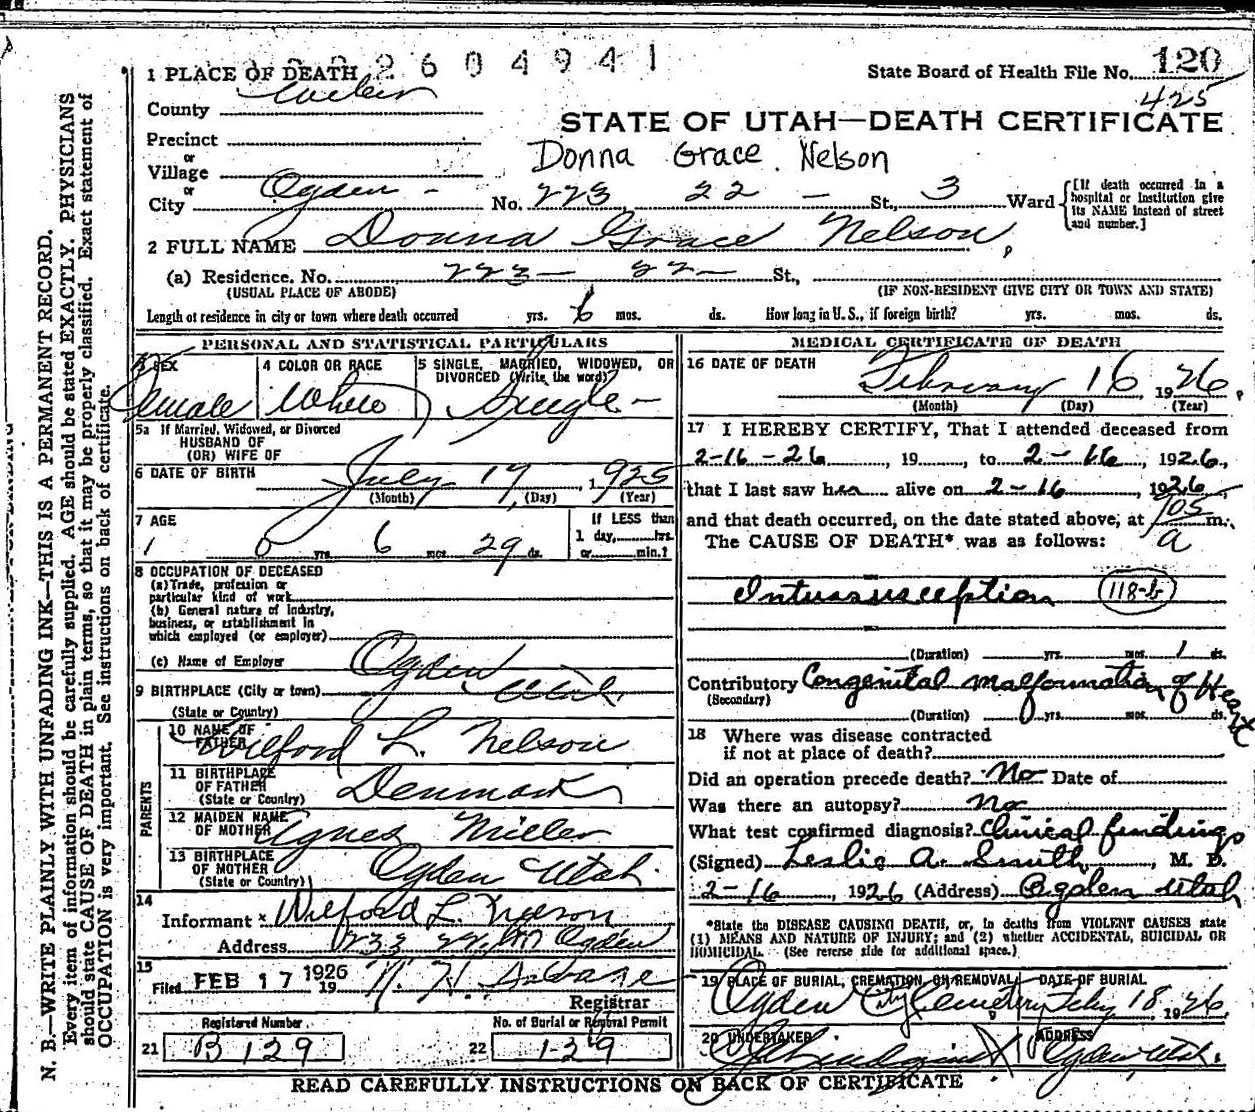 2604941
1 PLACE OF DEATH
State Board of Health File No. 120
425
County Weber
STATE OF UTAH—DEATH CERTIFICATE
Precinct
Donna Grace Nelson
or
Village
or
City Ogden - No. 223 22 — St., 3 Ward
[If death occurred in a
hospital or institution give
its NAME instead of street
and number.]
2 FULL NAME Donna Grace Nelson,
(a) Residence. No. 223— 22— St.,
(USUAL PLACE OF ABODE) (IF NON-RESIDENT GIVE CITY OR TOWN AND STATE)
Length of residence in city or town where death occurred yrs. 6 mos. ds. How long in U. S., if foreign birth? yrs. mos. ds.
PERSONAL AND STATISTICAL PARTICULARS
3 SEX
Female
4 COLOR OR RACE
White
5 SINGLE, MARRIED, WIDOWED, OR
DIVORCED (Write the word)
Single —
5a If Married, Widowed, or Divorced
HUSBAND OF
(OR) WIFE OF
6 DATE OF BIRTH July 19, 1925
(Month) (Day) (Year)
7 AGE
0 yrs. 6 mos. 29 ds.
If LESS than
1 day, hrs.
or min.?
8 OCCUPATION OF DECEASED
(a) Trade, profession or
particular kind of work
(b) General nature of industry,
business, or establishment in
which employed (or employer)
(c) Name of Employer
9 BIRTHPLACE (City or town) Ogden
(State or Country) Utah.
PARENTS
10 NAME OF
FATHER Wilford L. Nelson
11 BIRTHPLACE
OF FATHER
(State or Country) Denmark
12 MAIDEN NAME
OF MOTHER Agnes Miller
13 BIRTHPLACE
OF MOTHER
(State or Country) Ogden Utah.
14
Informant x Wilford L. Nelson
Address Ogden
15
Filed FEB 17 1926 19
Registrar
Registered Number
21 B 129
No. of Burial or Removal Permit
22 1-29
MEDICAL CERTIFICATE OF DEATH
16 DATE OF DEATH
February 16 1926,
(Month) (Day) (Year)
17 I HEREBY CERTIFY, That I attended deceased from
2-16-26, 19, to 2-16, 1926,
that I last saw her alive on 2-16, 1926,
and that death occurred, on the date stated above, at 105 m.
a
The CAUSE OF DEATH* was as follows:
Intussusception 118-b
(Duration) yrs. mos. 1 ds.
Contributory Congenital malformation of Heart
(Secondary)
(Duration) 0 yrs. mos. ds.
18 Where was disease contracted
if not at place of death?
Did an operation precede death? No Date of
Was there an autopsy? no
What test confirmed diagnosis? Clinical findings
(Signed) Leslie A. Smith, M. D.
2-16, 1926 (Address) Ogden Utah
*State the DISEASE CAUSING DEATH, or, in deaths from VIOLENT CAUSES state
(1) MEANS AND NATURE OF INJURY; and (2) whether ACCIDENTAL, SUICIDAL OR
HOMICIDAL. (See reverse side for additional space.)
19 PLACE OF BURIAL, CREMATION, OR REMOVAL DATE OF BURIAL
Ogden City Cemetery, Feby 18 1926.
20 UNDERTAKER ADDRESS
Ogden, Utah.
READ CAREFULLY INSTRUCTIONS ON BACK OF CERTIFICATE
N. B.—WRITE PLAINLY WITH UNFADING INK—THIS IS A PERMANENT RECORD.
Every item of information should be carefully supplied. AGE should be stated EXACTLY. PHYSICIANS
should state CAUSE OF DEATH in plain terms, so that it may be properly classified. Exact statement of
OCCUPATION is very important. See instructions on back of certificate.